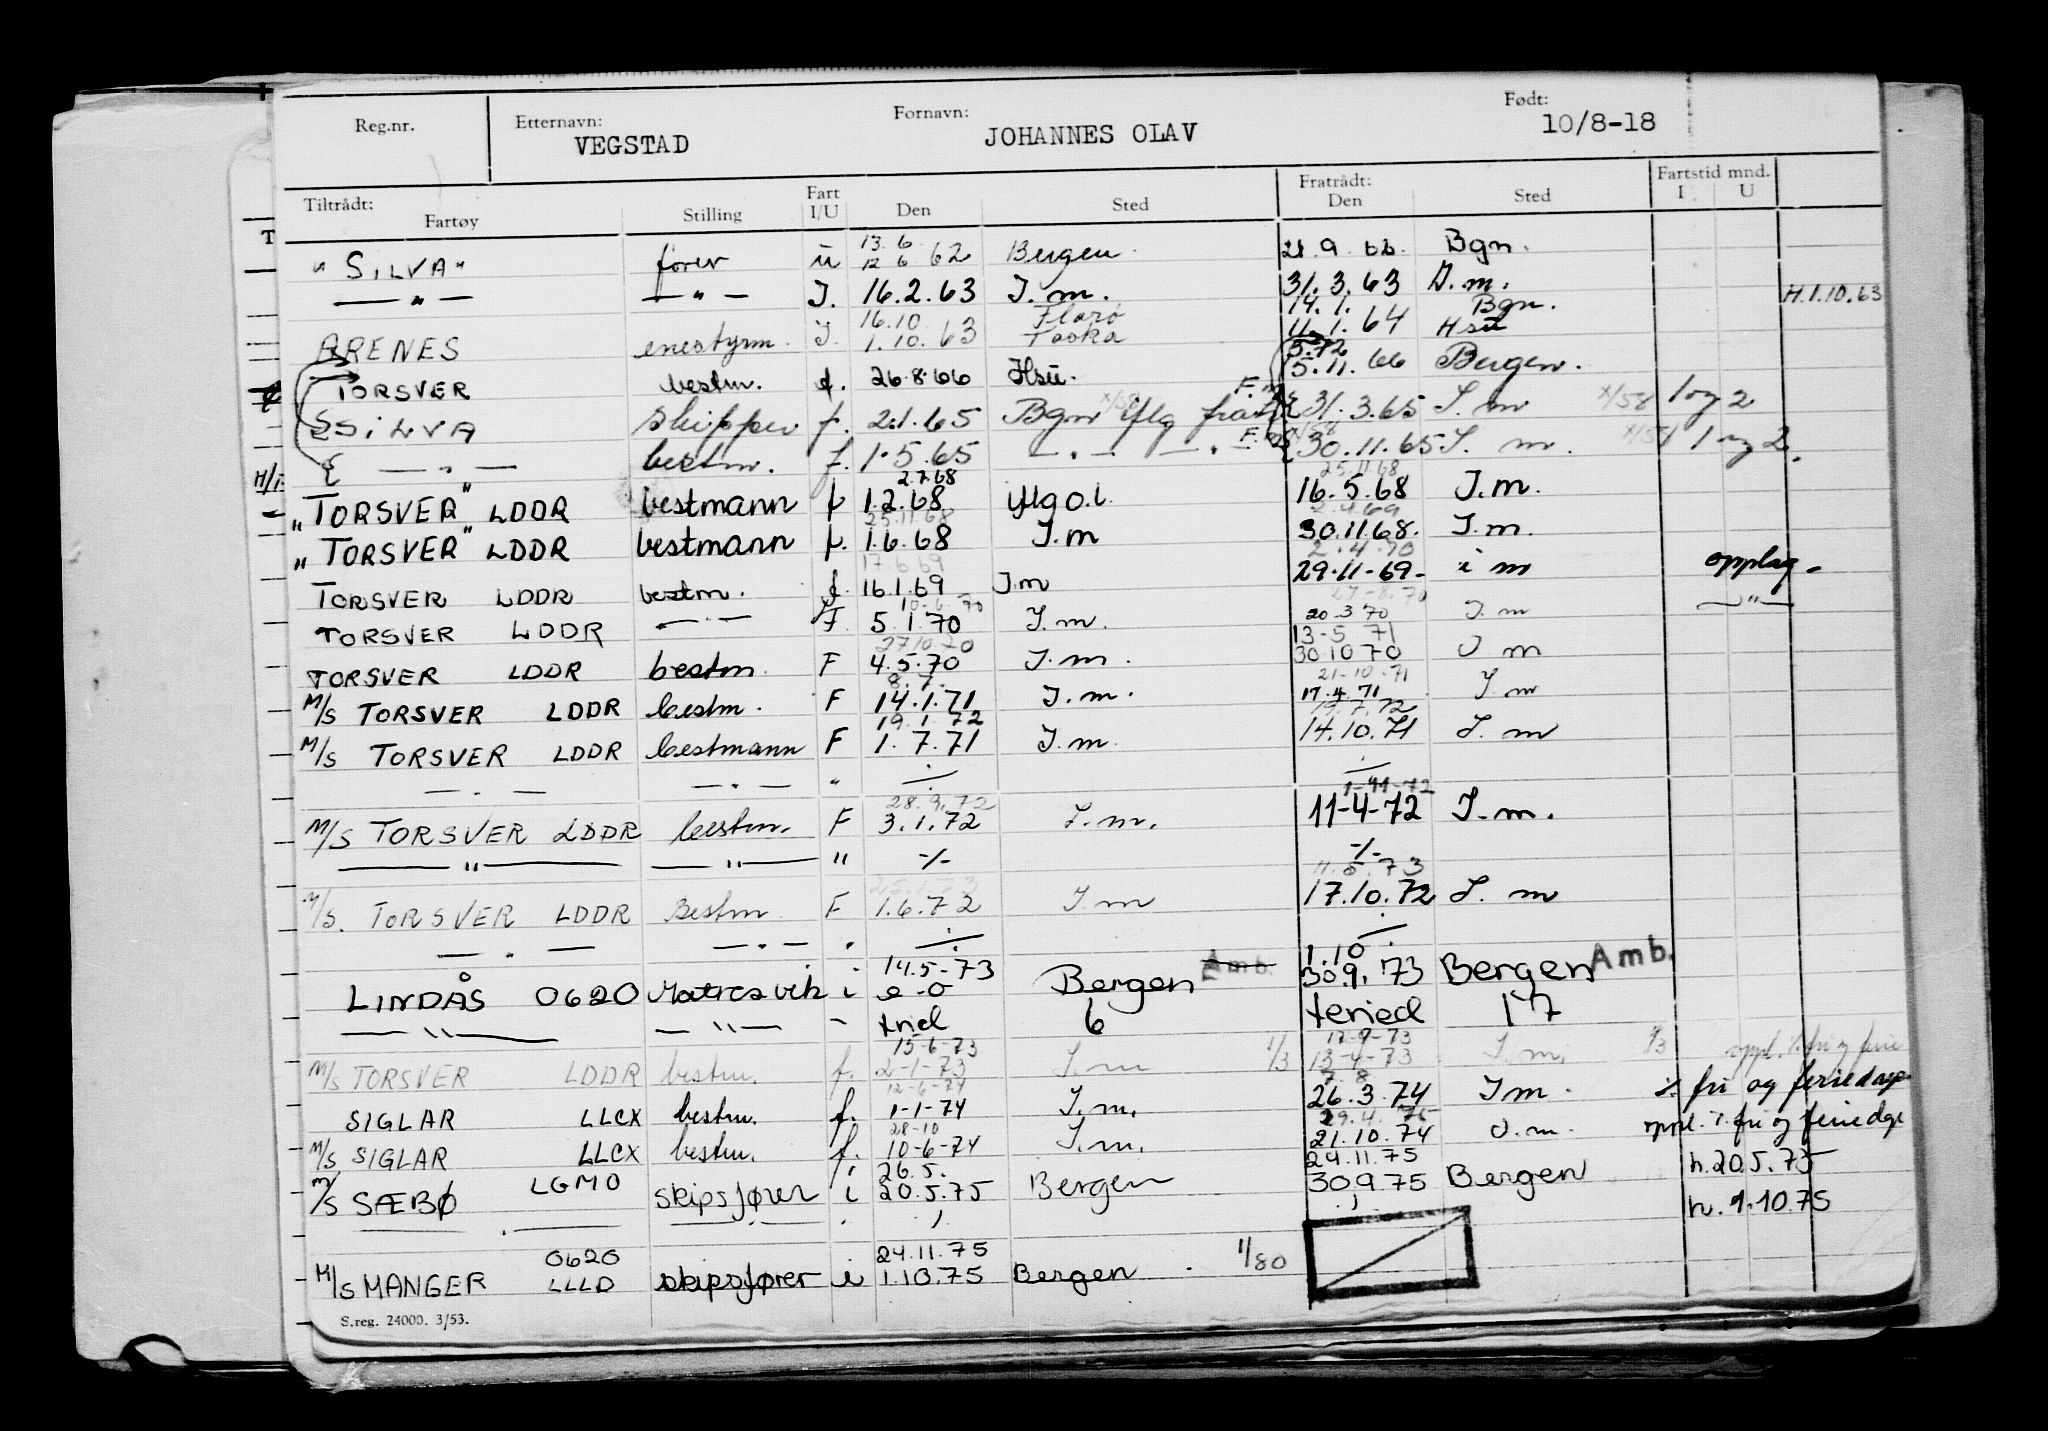 Reg.nr. Etternavn: VEGSTAD Fornavn: JOHANNES OLAV Født: 10/8-18
Tiltrådt: Fartøy Stilling Fart I/U Den Sted Fratrådt: Den Sted Fartstid mnd. I U
13. 6
"SILVA" fører u 12 6 62 Bergen. 21. 9. 62. Bgn.
— " — — " — I. 16.2.63 I.m. 31.3.63 I.m. H.1.10.63
16.10 Florø 14.1. Bgn.
ARENES enestyrm. I. 1.10.63 Faska 11.1.64 Hsu
5.12
TORSVER bestm. f. 26.8.66 Hsu. 5.11.66 Bergen.
SILVA skipper f. 2.1.65 Bgn iflg fra F.m 31.3.65 I.m X/58 1 og 2
— " — bestm. f. 1.5.65 — . — — . — F.m 30.11.65 I.m. 1 og 2.
2.7.68 25.11.68
"TORSVER" LDDR bestmann f 1.2.68 iflg o.l. 16.5.68 I.m.
25.11.68 2.4.69
"TORSVER" LDDR bestmann f. 1.6.68 I.m 30.11.68. I.m.
17.6.69 2.4.70
TORSVER LDDR bestm. f. 16.1.69 I.m 29.11-69- i m opplag.
10-6-70 27-8.70
TORSVER LDDR — " — F. 5.1.70 I.m. 20.3.70 I.m — " —
27.10.70 13-5 71
TORSVER LDDR bestm. F 4.5.70 I.m. 30.10 70 I m
8.7. 21-10.71
M/S TORSVER LDDR bestm. F 14.1.71 I.m. 17.4.71 I.m
19.1.72 19.7.72
M/S TORSVER LDDR bestmann F 1.7.71 I.m. 14.10.71 I.m
— . — — . — " ./. ./.
28.9.72 1-11-72
M/S TORSVER LDDR bestm. F 3.1.72 I.m. 11-4-72 I.m.
— " — — " — " -/- -/-
25.1.73 11.5.73
M/S. TORSVER LDDR Bestm. F 1.6.72 I.m 17.10.72 I.m
— . — — . — . ./. ./.
14.5-73 Amb. 1.10 Amb.
LINDÅS 0620 i e-o Bergen 30.9.73 Bergen
— " — — " — 6 feried 17
15-6-73 17-9-73
M/S TORSVER LDDR bestm. f. 2-1-73 I.m 1/3 13-4-73 I.m. 1/3 oppl. ./. fri og ferie
12-6-74 7.8
SIGLAR LLCX bestm. f. 1-1-74 I.m. 26.3.74 I m. ./. fri og feriedage
28-10 29.4.75
M/S SIGLAR LLCX bestm. f. 10-6-74 I.m. 21.10.74 I.m. oppl. ./. fri og feriedge
26.5. 24.11.75 h.20.5.75
M/S SÆBØ LGMO skipsfører i 20.5.75 Bergen 30.9.75 Bergen
— . — — . — h. 1.10.75
0620 24.11.75
M/S MANGER LLLD skipsfører i 1.10.75 Bergen 1/80
S.reg. 24000. 3/53.